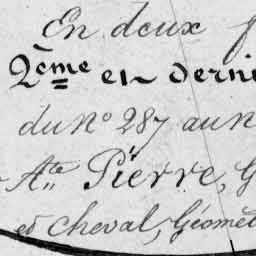 En deux f
2ème en derni
du N° 287 au N
Ate Pierre, G
et Cheval, Géomèt